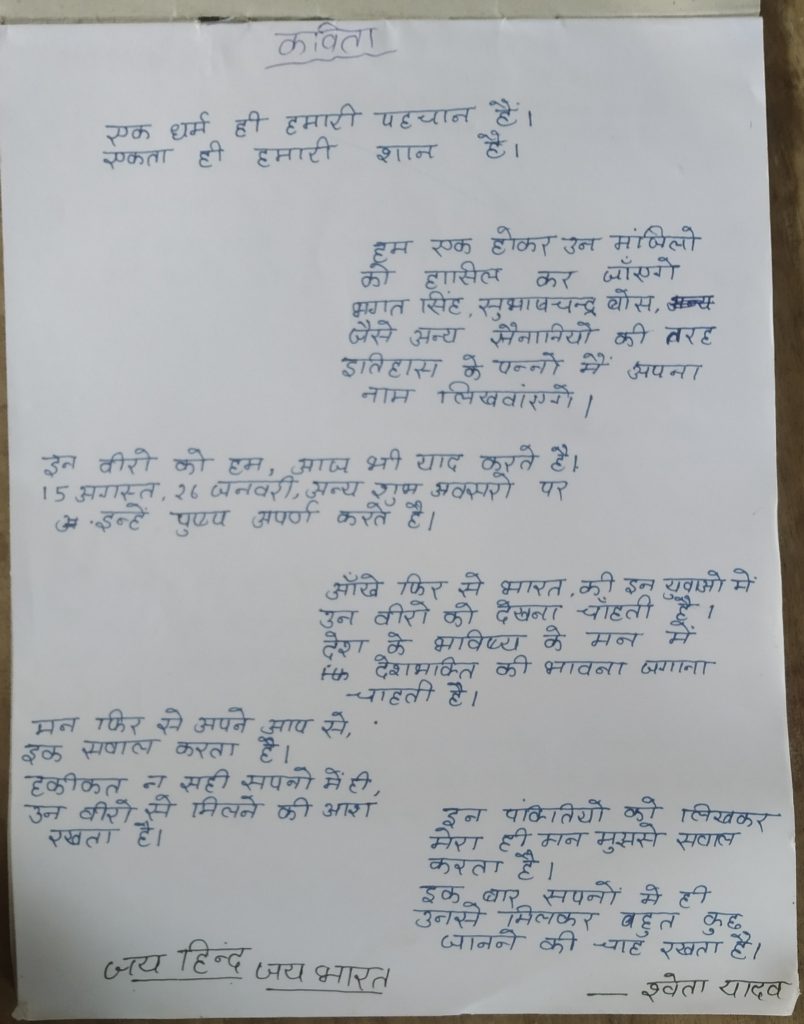 कविता
एक धर्म ही हमारी पहचान हैं।
एकता ही हमारी शान है।
हम एक होकर उन मंजिलो
को हासिल कर जाँएगे
भगत सिंह, सुभाषचन्द्र बोस,
जैसे अन्य सैनानियो की तरह
इतिहास के पन्नो में अपना
नाम लिखवांएगे।
इन वीरो को हम, आज भी याद करते है।
15 अगस्त, 26 जनवरी, अन्य शुभ अवसरो पर
इन्हें पुष्प अपर्ण करते है।
आँखे फिर से भारत की इन युवाओ में
उन वीरो को देखना चाँहती है।
देश के भविष्य के मन में
देशभक्ति की भावना जगाना
चाहती है।
मन फिर से अपने आप से,
इक सवाल करता है।
हकीकत न सही सपनो में ही,
उन वीरो से मिलने की आश
रखता है।
इन पंक्तियो को लिखकर
मेरा ही मन मुझसे सवाल
करता है।
इक बार सपनों मे ही
उनसे मिलकर बहुत कुछ
जानने की चाह रखता है।
जय हिन्द जय भारत
— श्वेता यादव